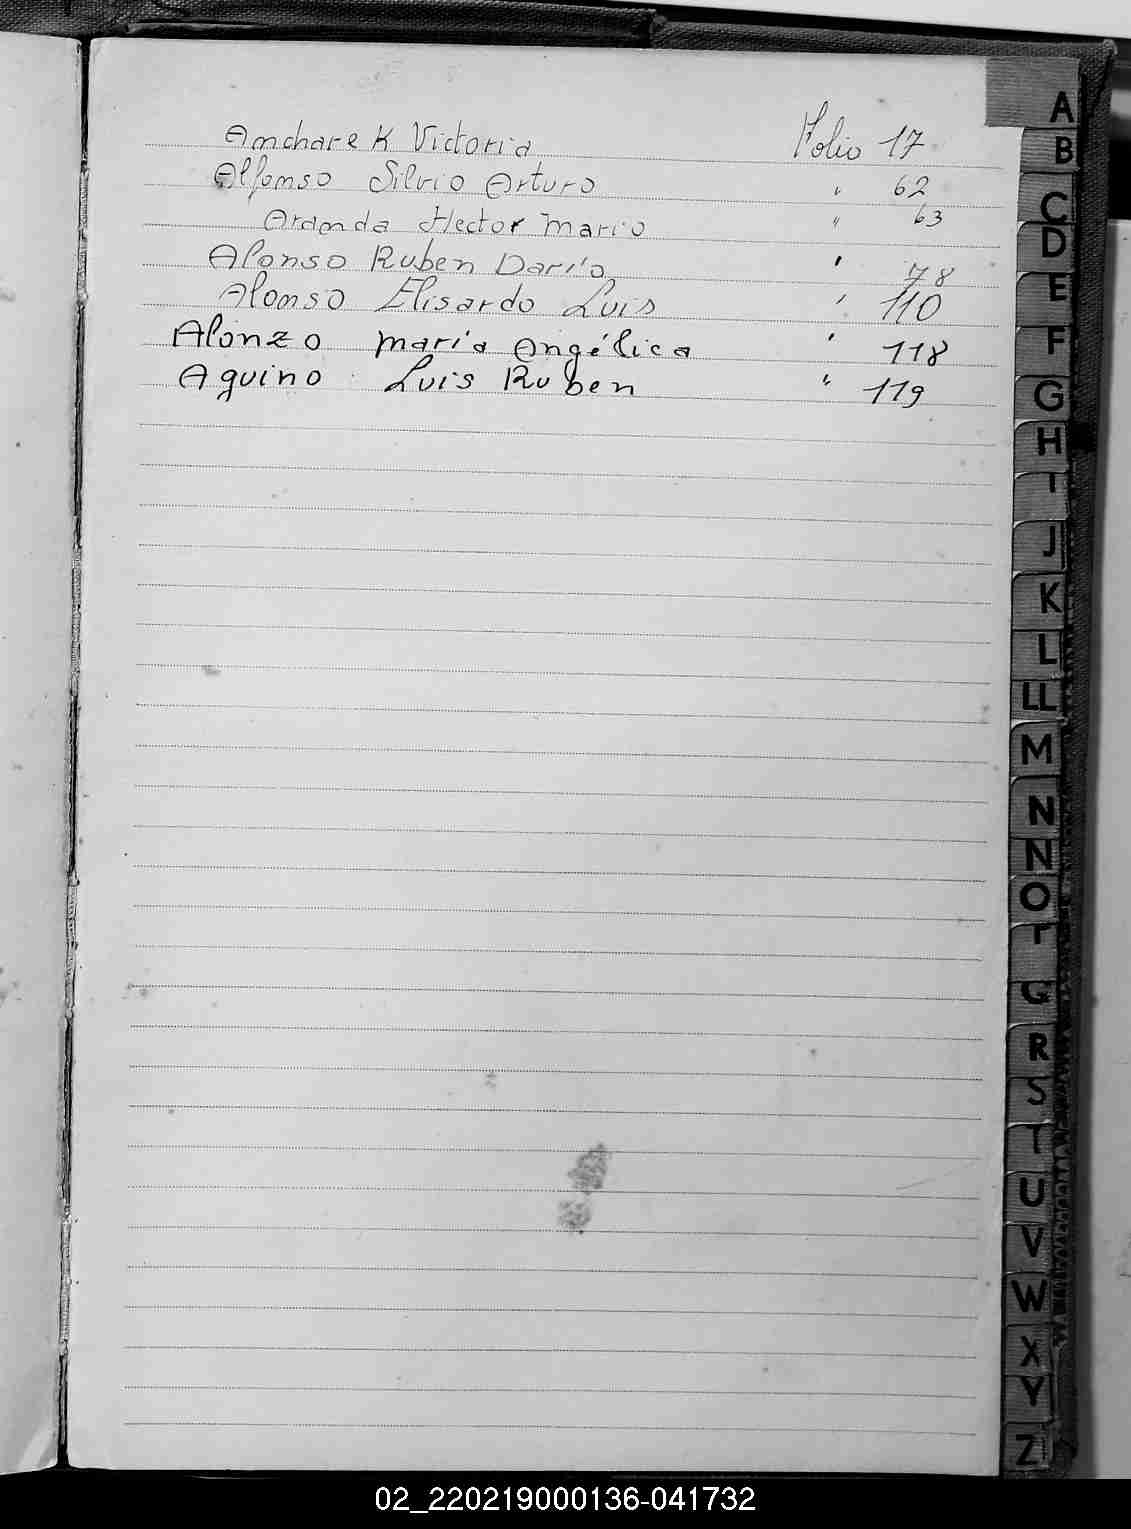 Amcharek Victoria Folio 17
Alfonso Silvio Arturo " 62
Aranda Hector Mario " 63
Alonso Ruben Darío " 78
Alonso Elisardo Luis " 110
Alonzo María Angélica " 118
Aquino Luis Ruben " 119
A
B
C
D
E
F
G
H
I
J
K
L
LL
M
N
N
O
G
R
S
T
U
V
W
X
Y
Z
02_220219000136-041732